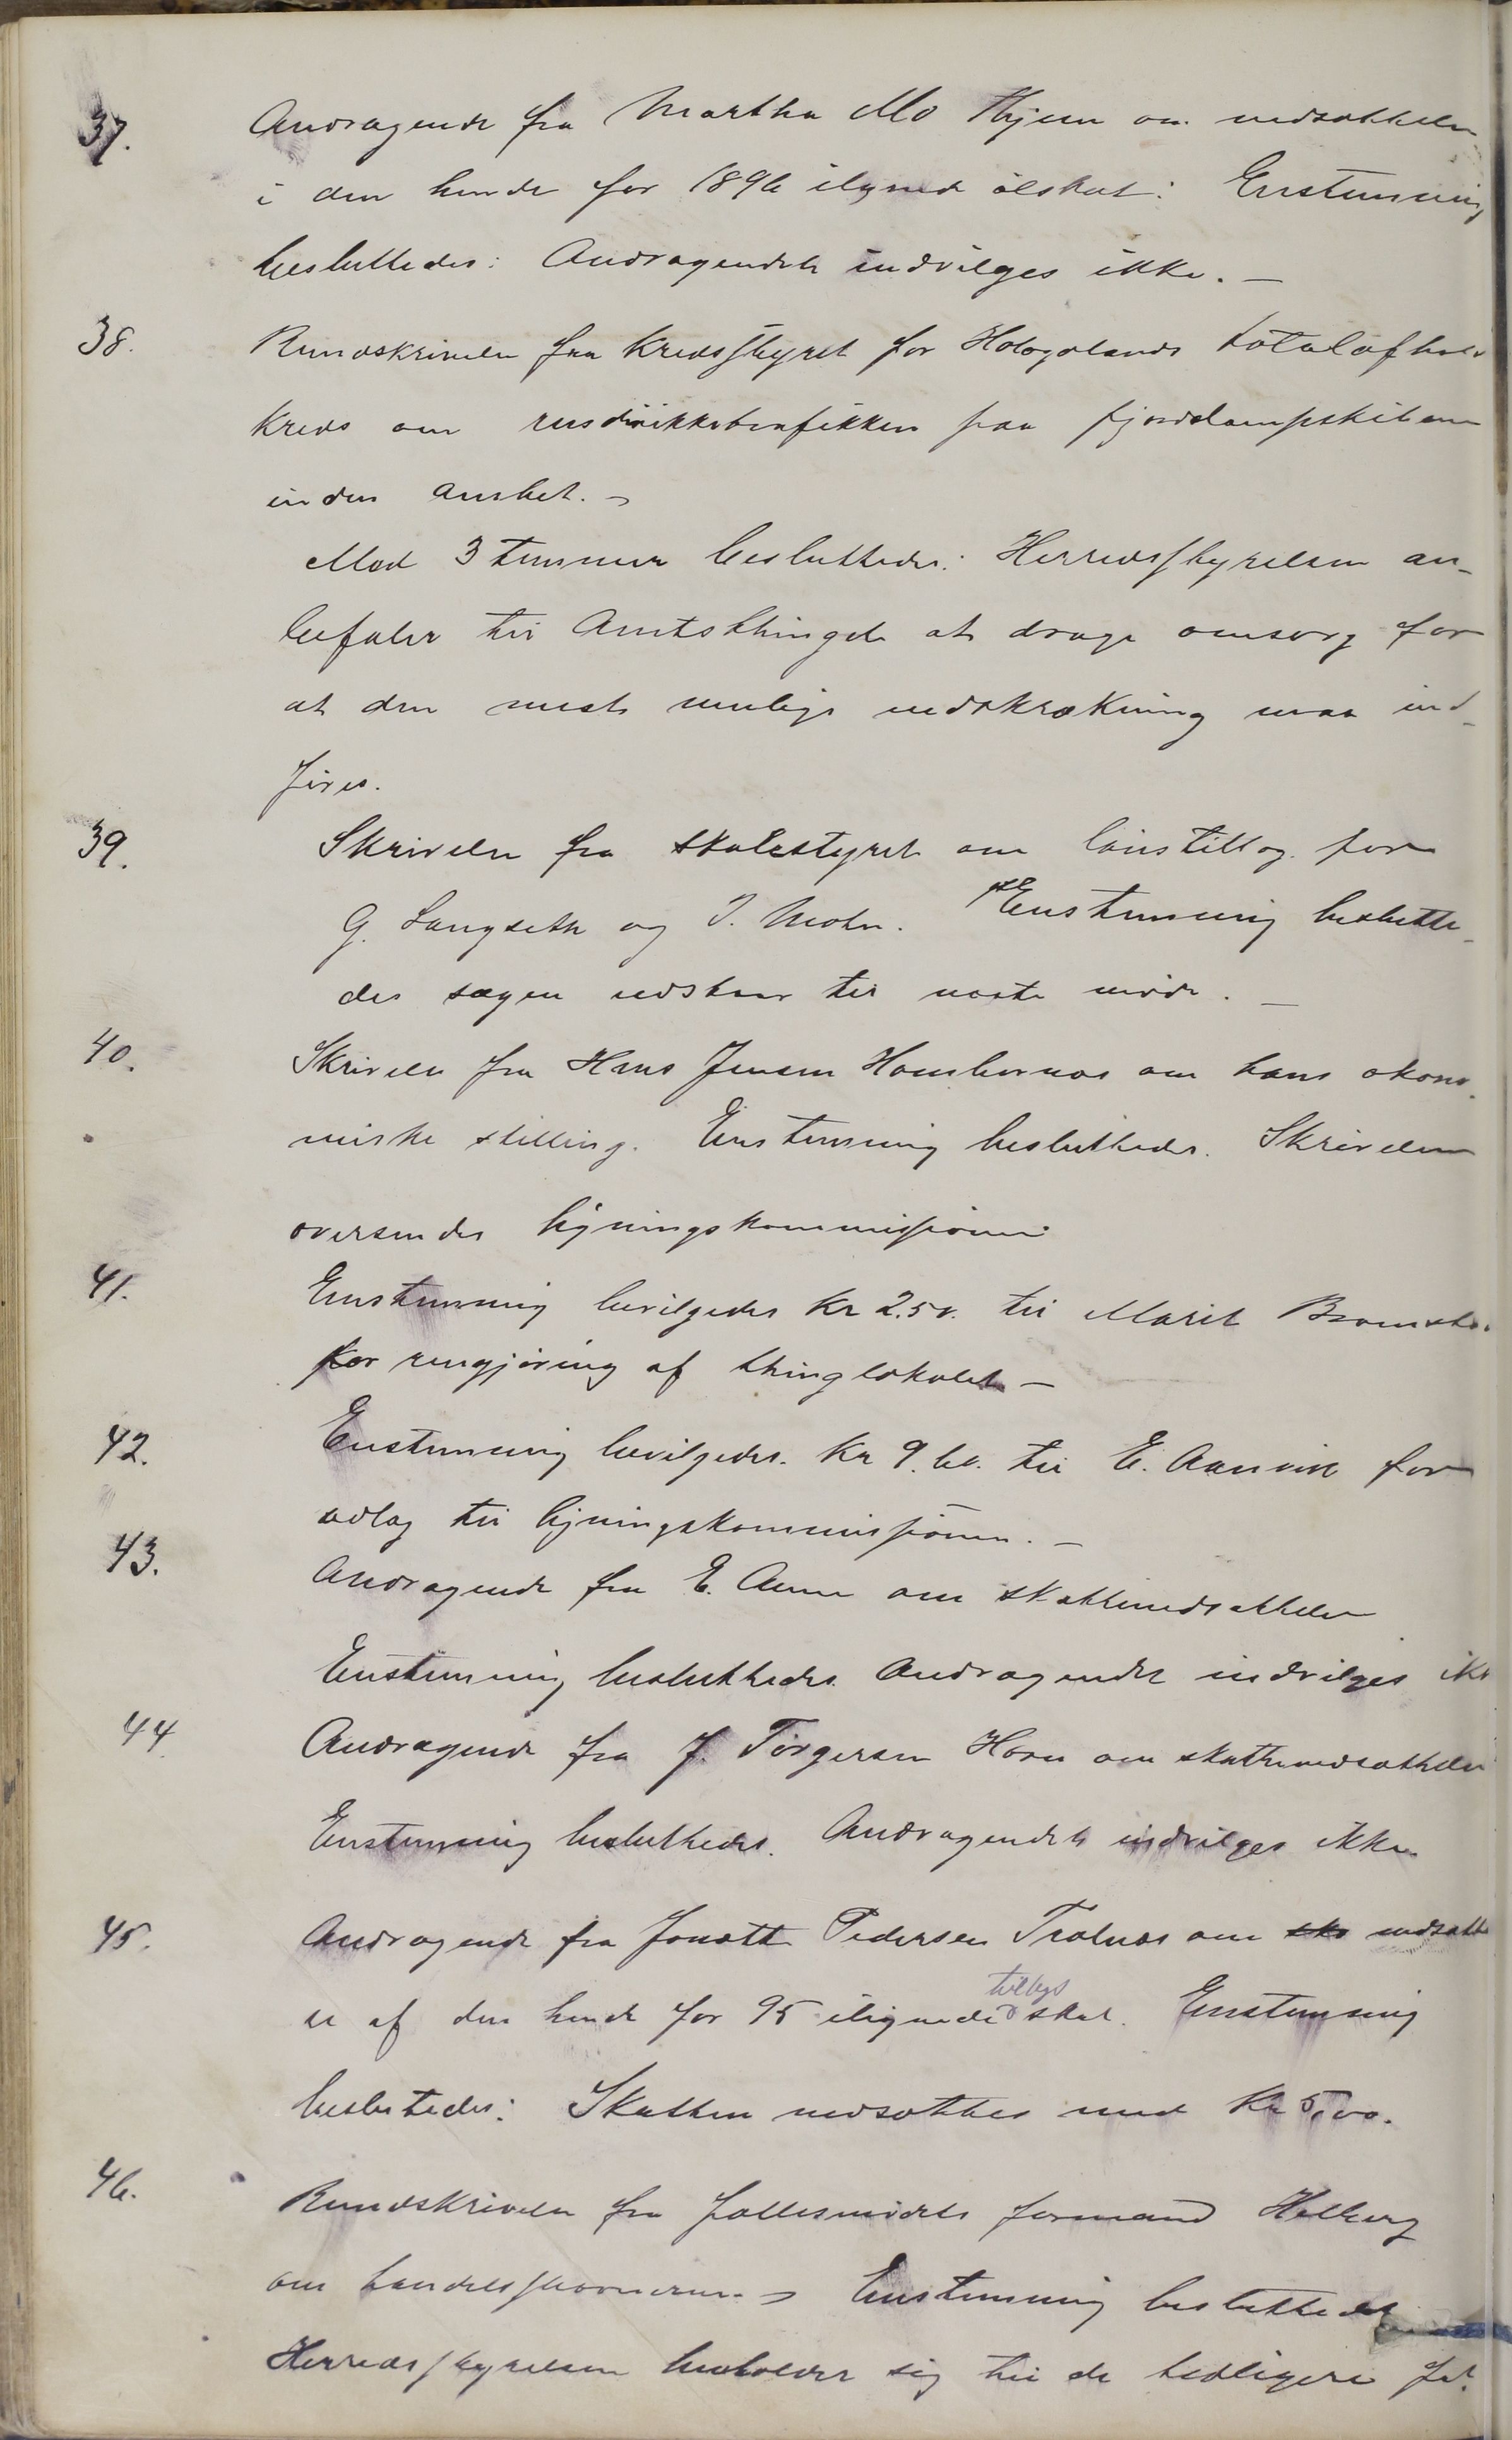 37. Andragende fra Martha Mo Hjem om nedsættelse
i den hende for 1896 ilignede ølskat: Enstemmig
besluttedes: Andragendet indvilges ikke. —
38. Rundskrivelse fra Kredsstyret for Halogalands totalafholds
kreds om rusdrikketrafikken paa fjorddampskibene
inden amtet. —
Mod 3 stemmer besluttedes: Herredsstyrelsen an-
befaler til Amtsthinget at drage omsorg for
at den mest mulige indskrækning maa ind-
føres.
39. Skrivelse fra skolestyret om lønstillæg for
G. Langseth og J. Mohn. Enstemmig beslutte-
des sagen udstaar til næste møde. —
40. Skrivelse fra Hans Jensen om hans økono-
miske stilling. Enstemmig besluttedes. Skrivelsen
oversendes ligningskommissionen
41. Enstemmig bevilgedes Kr 2.50. til Marit
for rengjøring af thinglokalet —
42. Enstemmig bevilgedes. Kr 9.60. til E. Aanvik for
udlæg til ligningskommissionen. —
43. Andragende fra E. Aune om skattenedsættelse
Enstemmig besluttedes Andragendet indvilges ikke
44 Andragende fra J. Torgersen Horn om skattenedsættelse
Enstemmig besluttedes. Andragendet indvilges ikke
45. Andragende fra Pedersen om nedsætt
se af den hende for 95 ilignede tillægs skat. Enstemmig
beslutedes: Skatten nedsættes med Kr 5,00.
46. Rundskrivelse fra fællesmødets formand Helberg
om Enstemmig besluttedes
Herredsstyrelsen henholder sig til de tidligere